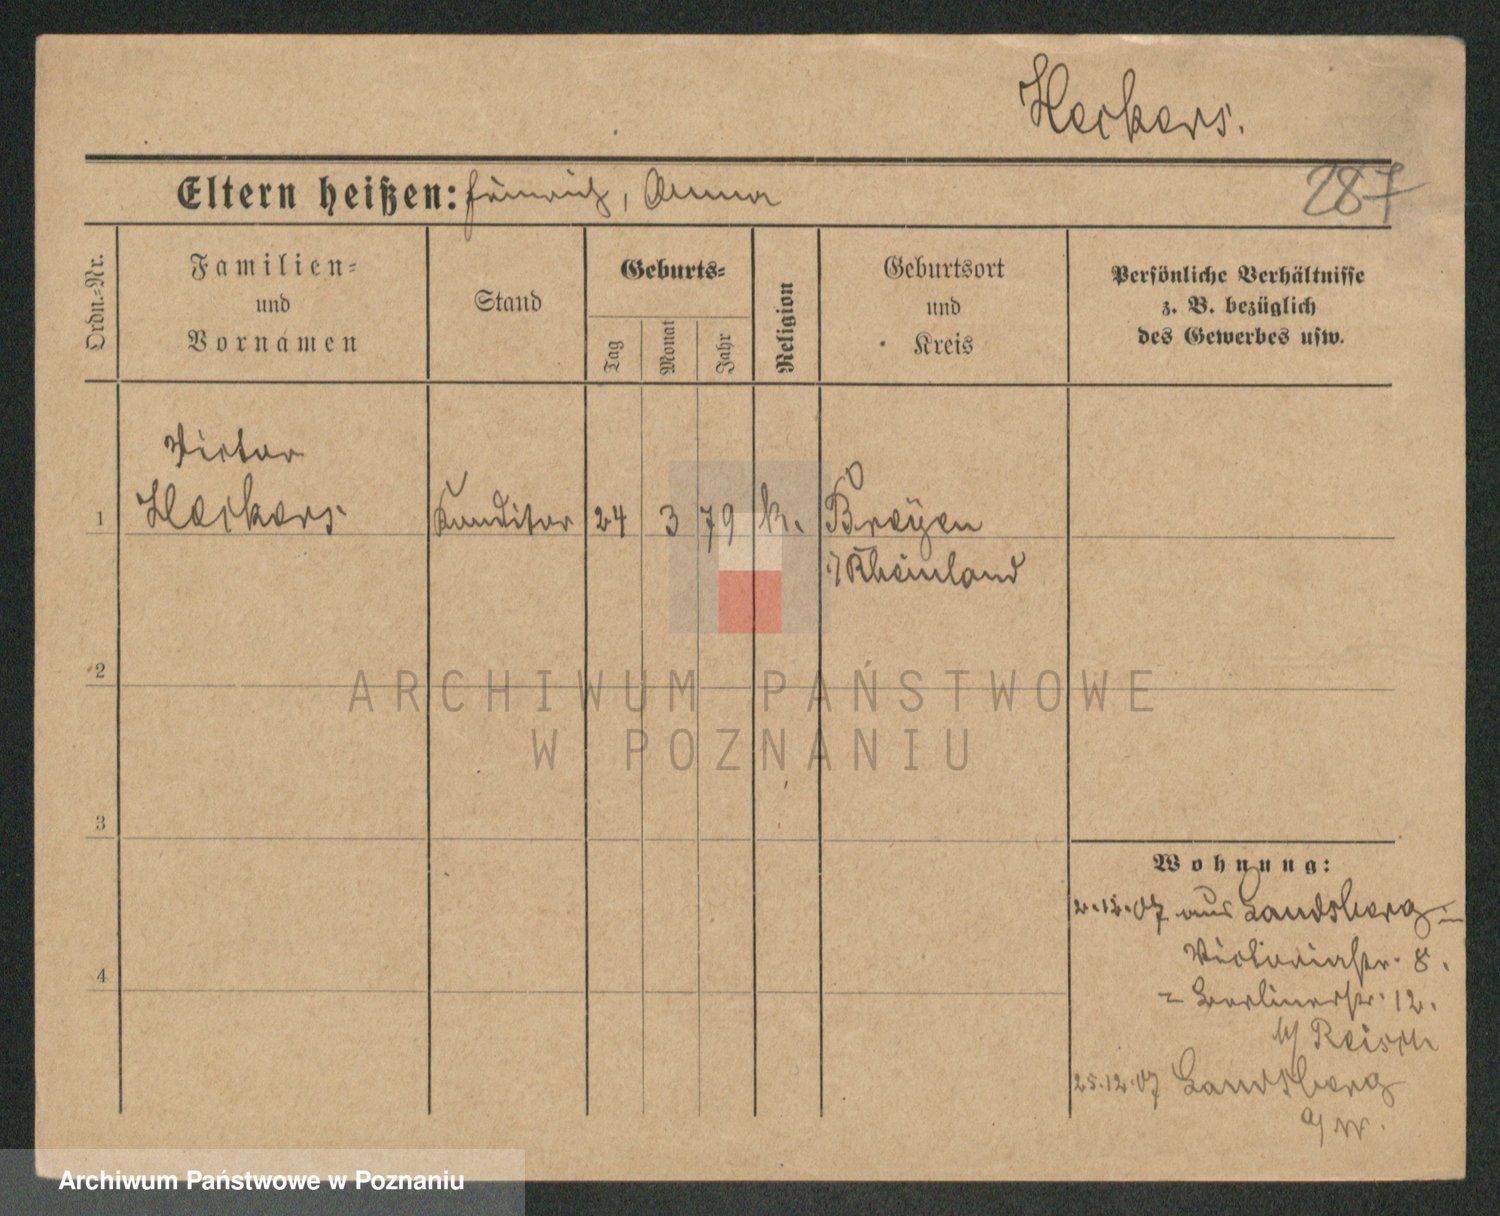 Heckers.
Eltern heißen: Heinrich, Anna
287
Ordn.-Nr.
Familien-
und
Vornamen
Stand
Geburts-
Tag
Monat
Jahr
Religion
Geburtsort
und
Kreis
Persönliche Verhältnisse
z. B. bezüglich
des Gewerbes usw.
Victor
1 Heckers Konditor 24 3 79 k. Breyen
i/Rheinland
2
3
4
ARCHIWUM PAŃSTWOWE
W POZNANIU
Wohnung:
2.12.07 aus Landsberg
Victoriastr. 8.
= Berlinerstr. 12.
b/ Reisch
25.12.07 Landsberg
a/W.
Archiwum Państwowe w Poznaniu